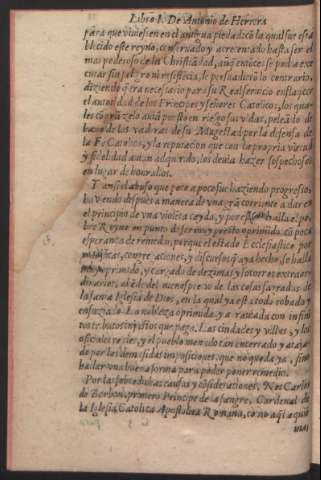 Libro I. De Antonio de Herrera
para que viniessen en el antigua piedad cō la qual fue esta
blecido este reyno, conseruado y acrecentado hasta ser el
mas poderoso de la Christiādad, aunq̄ entōces se podia exe
cutar sin pel gro ni resistēcia, le persuadierō lo contrario,
diziendo q̄ era necessario para su Real seruicio
el autoridad de los Principes y señores Catolicos, los qua
les cō gra zelo auiā puesto en riesgo sus vidas, peleādo de
baxo de las vāderas de su Magestad por la defensa de
la Fè Catolica, y la reputacion que con la propria virtud
y fidelidad auian adquirido, los deuia hazer sospechosos
en lugar de honrallos.
Y ansi el abuso que poco a poco fue haziendo progresso,
ha venido despues a manera de vna grā corriente a dar en
el principio de vna violēta cayda, y por esso se halla el po
bre Reyno en punto de ser muy presto oprimido, cō poca
esperança de remedio, porque el estado Ecclesiastico por
las congregaciones, y discursos q̄ aya hecho, se halla
muy oprimido, y cargado de dezimas y
dinarios, allēde del menosprecio de las cosas sagradas de
la santa Iglesia de Dios, en la qual ya està todo robado y
ensuziado. La nobleza oprimida, y arruinada con infini
tos tributos injustos que paga. Las ciudades y villas, y los
oficiales reales, y el pueblo menudo tan enterrado y ataja
do por las demasiadas imposiciones, que no queda ya, sino
hallar vna buena forma para poder poner remedio.
Por las sobredichas causas y cōsideraciones, Nos Carlos
de Borbon, primero Principe de la sangre, Cardenal de
la Iglesia Catolica Apostolica Romana, como aquel a quiē
mas